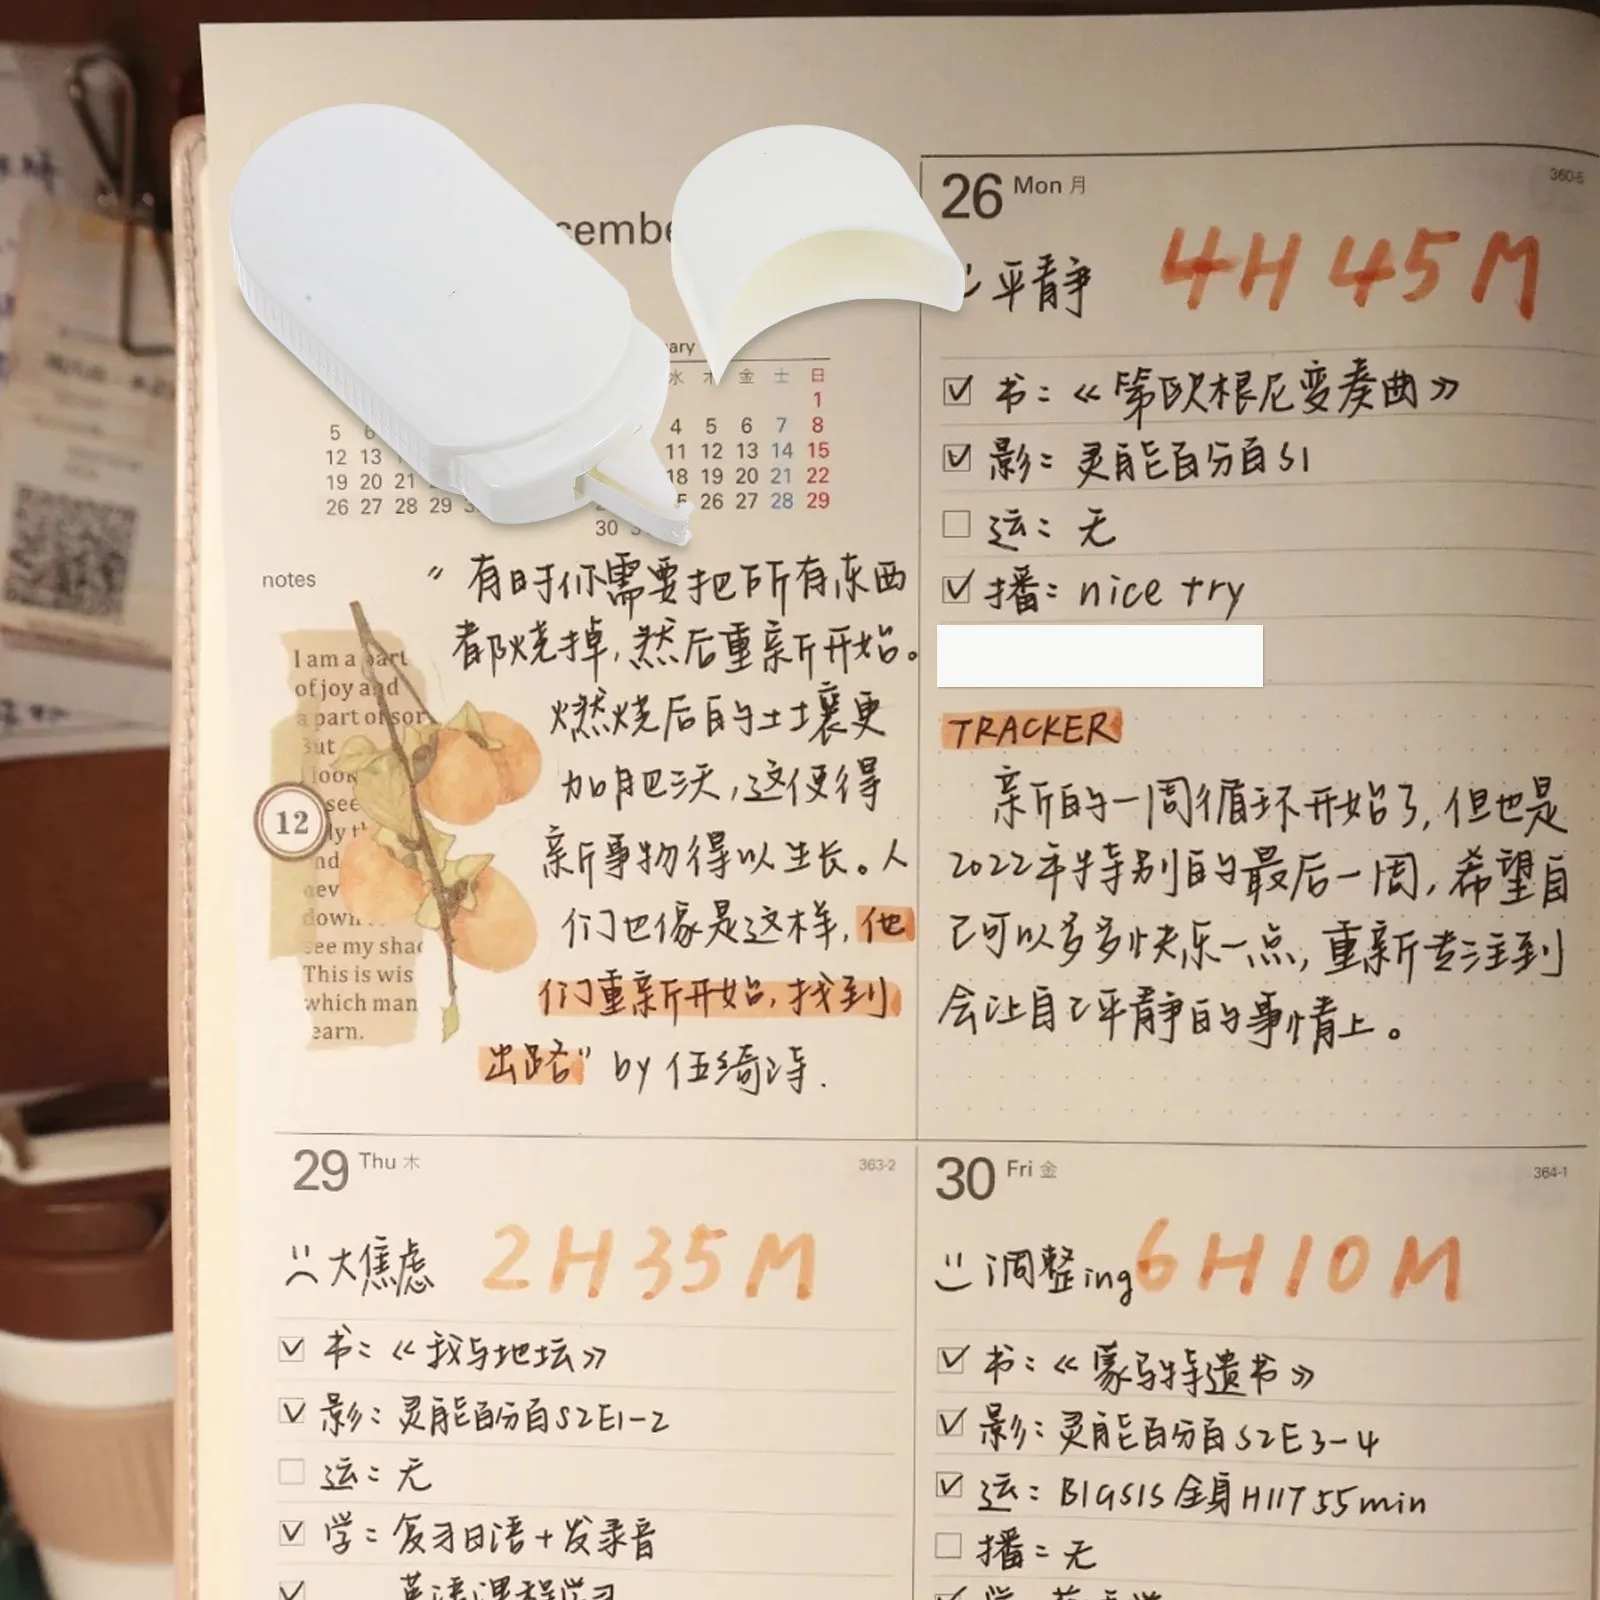 cembe
ary
水 木 金 土 日
1
5 6 4 5 6 7 8
12 13 11 12 13 14 15
19 20 21 18 19 20 21 22
26 27 28 29 26 27 28 29
30
notes
“有时你需要把所有东西
都烧掉,然后重新开始。
燃烧后的土壤更
加肥沃,这便得
新事物得以生长。人
们也像是这样,他
们重新开始,找到
出路” by 伍绮诗.
I am a part
of joy and
a part of sor
But
I look
see
ly t
nd
nev
down
see my shad
This is wis
which man
earn.
12
26 Mon 月 360-5
平静 4H 45M
书:《第欧根尼变奏曲》
影:灵能百分百S1
运:无
播:nice try
TRACKER
新的一周循环开始了,但也是
2022年特别的最后一周,希望自
己可以多多快乐一点,重新专注到
会让自己平静的事情上。
29 Thu 木 363-2
大焦虑 2H 35M
书:《我与地坛》
影:灵能百分百S2E1-2
运:无
学:复习日语+发录音
英语课程学习
30 Fri 金 364-1
调整ing 6H10M
书:《蒙马特遗书》
影:灵能百分百S2E3-4
运:BIGSIS全身HIIT 55min
播:无